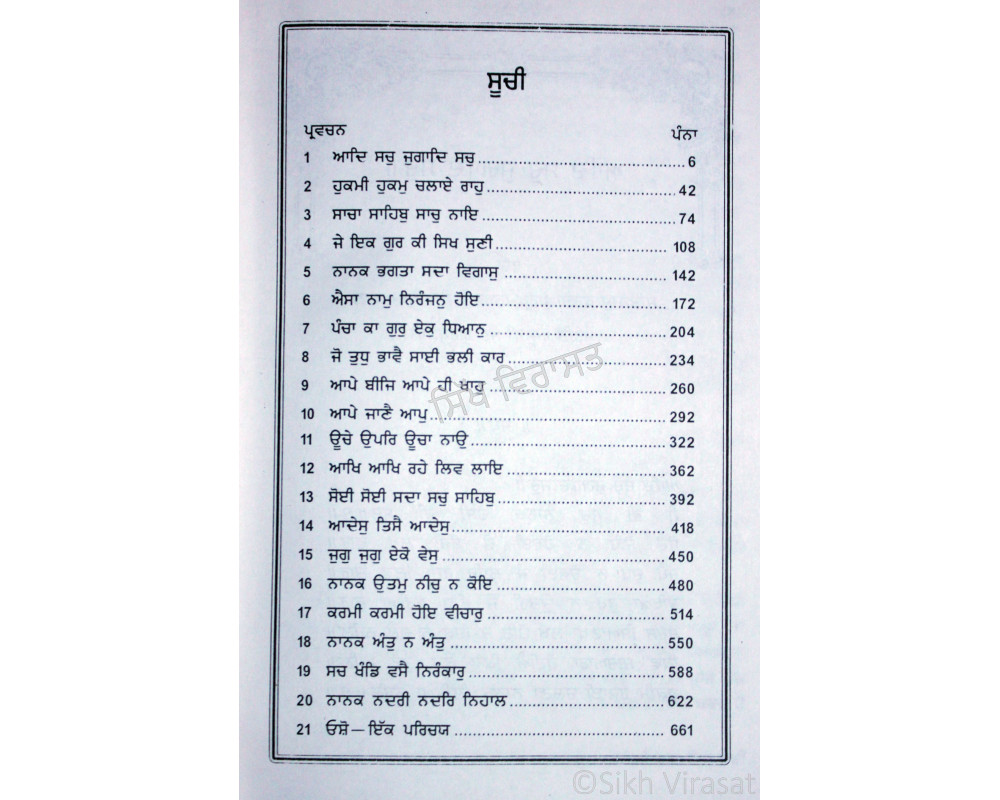 ਸੂਚੀ
ਪ੍ਰਵਚਨ ਪੰਨਾ
1 ਆਦਿ ਸਚੁ ਜੁਗਾਦਿ ਸਚੁ 6
2 ਹੁਕਮੀ ਹੁਕਮੁ ਚਲਾਏ ਰਾਹੁ 42
3 ਸਾਚਾ ਸਾਹਿਬੁ ਸਾਚੁ ਨਾਇ 74
4 ਜੇ ਇਕ ਗੁਰ ਕੀ ਸਿਖ ਸੁਣੀ 108
5 ਨਾਨਕ ਭਗਤਾ ਸਦਾ ਵਿਗਾਸੁ 142
6 ਐਸਾ ਨਾਮੁ ਨਿਰੰਜਨੁ ਹੋਇ 172
7 ਪੰਚਾ ਕਾ ਗੁਰੁ ਏਕੁ ਧਿਆਨੁ 204
8 ਜੋ ਤੁਧੁ ਭਾਵੈ ਸਾਈ ਭਲੀ ਕਾਰ 234
9 ਆਪੇ ਬੀਜਿ ਆਪੇ ਹੀ ਖਾਹੁ 260
10 ਆਪੇ ਜਾਣੈ ਆਪੁ 292
11 ਊਚੇ ਉਪਰਿ ਊਚਾ ਨਾਉ 322
12 ਆਖਿ ਆਖਿ ਰਹੇ ਲਿਵ ਲਾਇ 362
13 ਸੋਈ ਸੋਈ ਸਦਾ ਸਚੁ ਸਾਹਿਬੁ 392
14 ਆਦੇਸੁ ਤਿਸੈ ਆਦੇਸੁ 418
15 ਜੁਗੁ ਜੁਗੁ ਏਕੋ ਵੇਸੁ 450
16 ਨਾਨਕ ਉਤਮੁ ਨੀਚੁ ਨ ਕੋਇ 480
17 ਕਰਮੀ ਕਰਮੀ ਹੋਇ ਵੀਚਾਰੁ 514
18 ਨਾਨਕ ਅੰਤੁ ਨ ਅੰਤੁ 550
19 ਸਚ ਖੰਡਿ ਵਸੈ ਨਿਰੰਕਾਰੁ 588
20 ਨਾਨਕ ਨਦਰੀ ਨਦਰਿ ਨਿਹਾਲ 622
21 ਓਸ਼ੋ — ਇੱਕ ਪਰਿਚਯ 661
ਸਿੱਖ ਵਿਰਾਸਤ
©Sikh Virasat